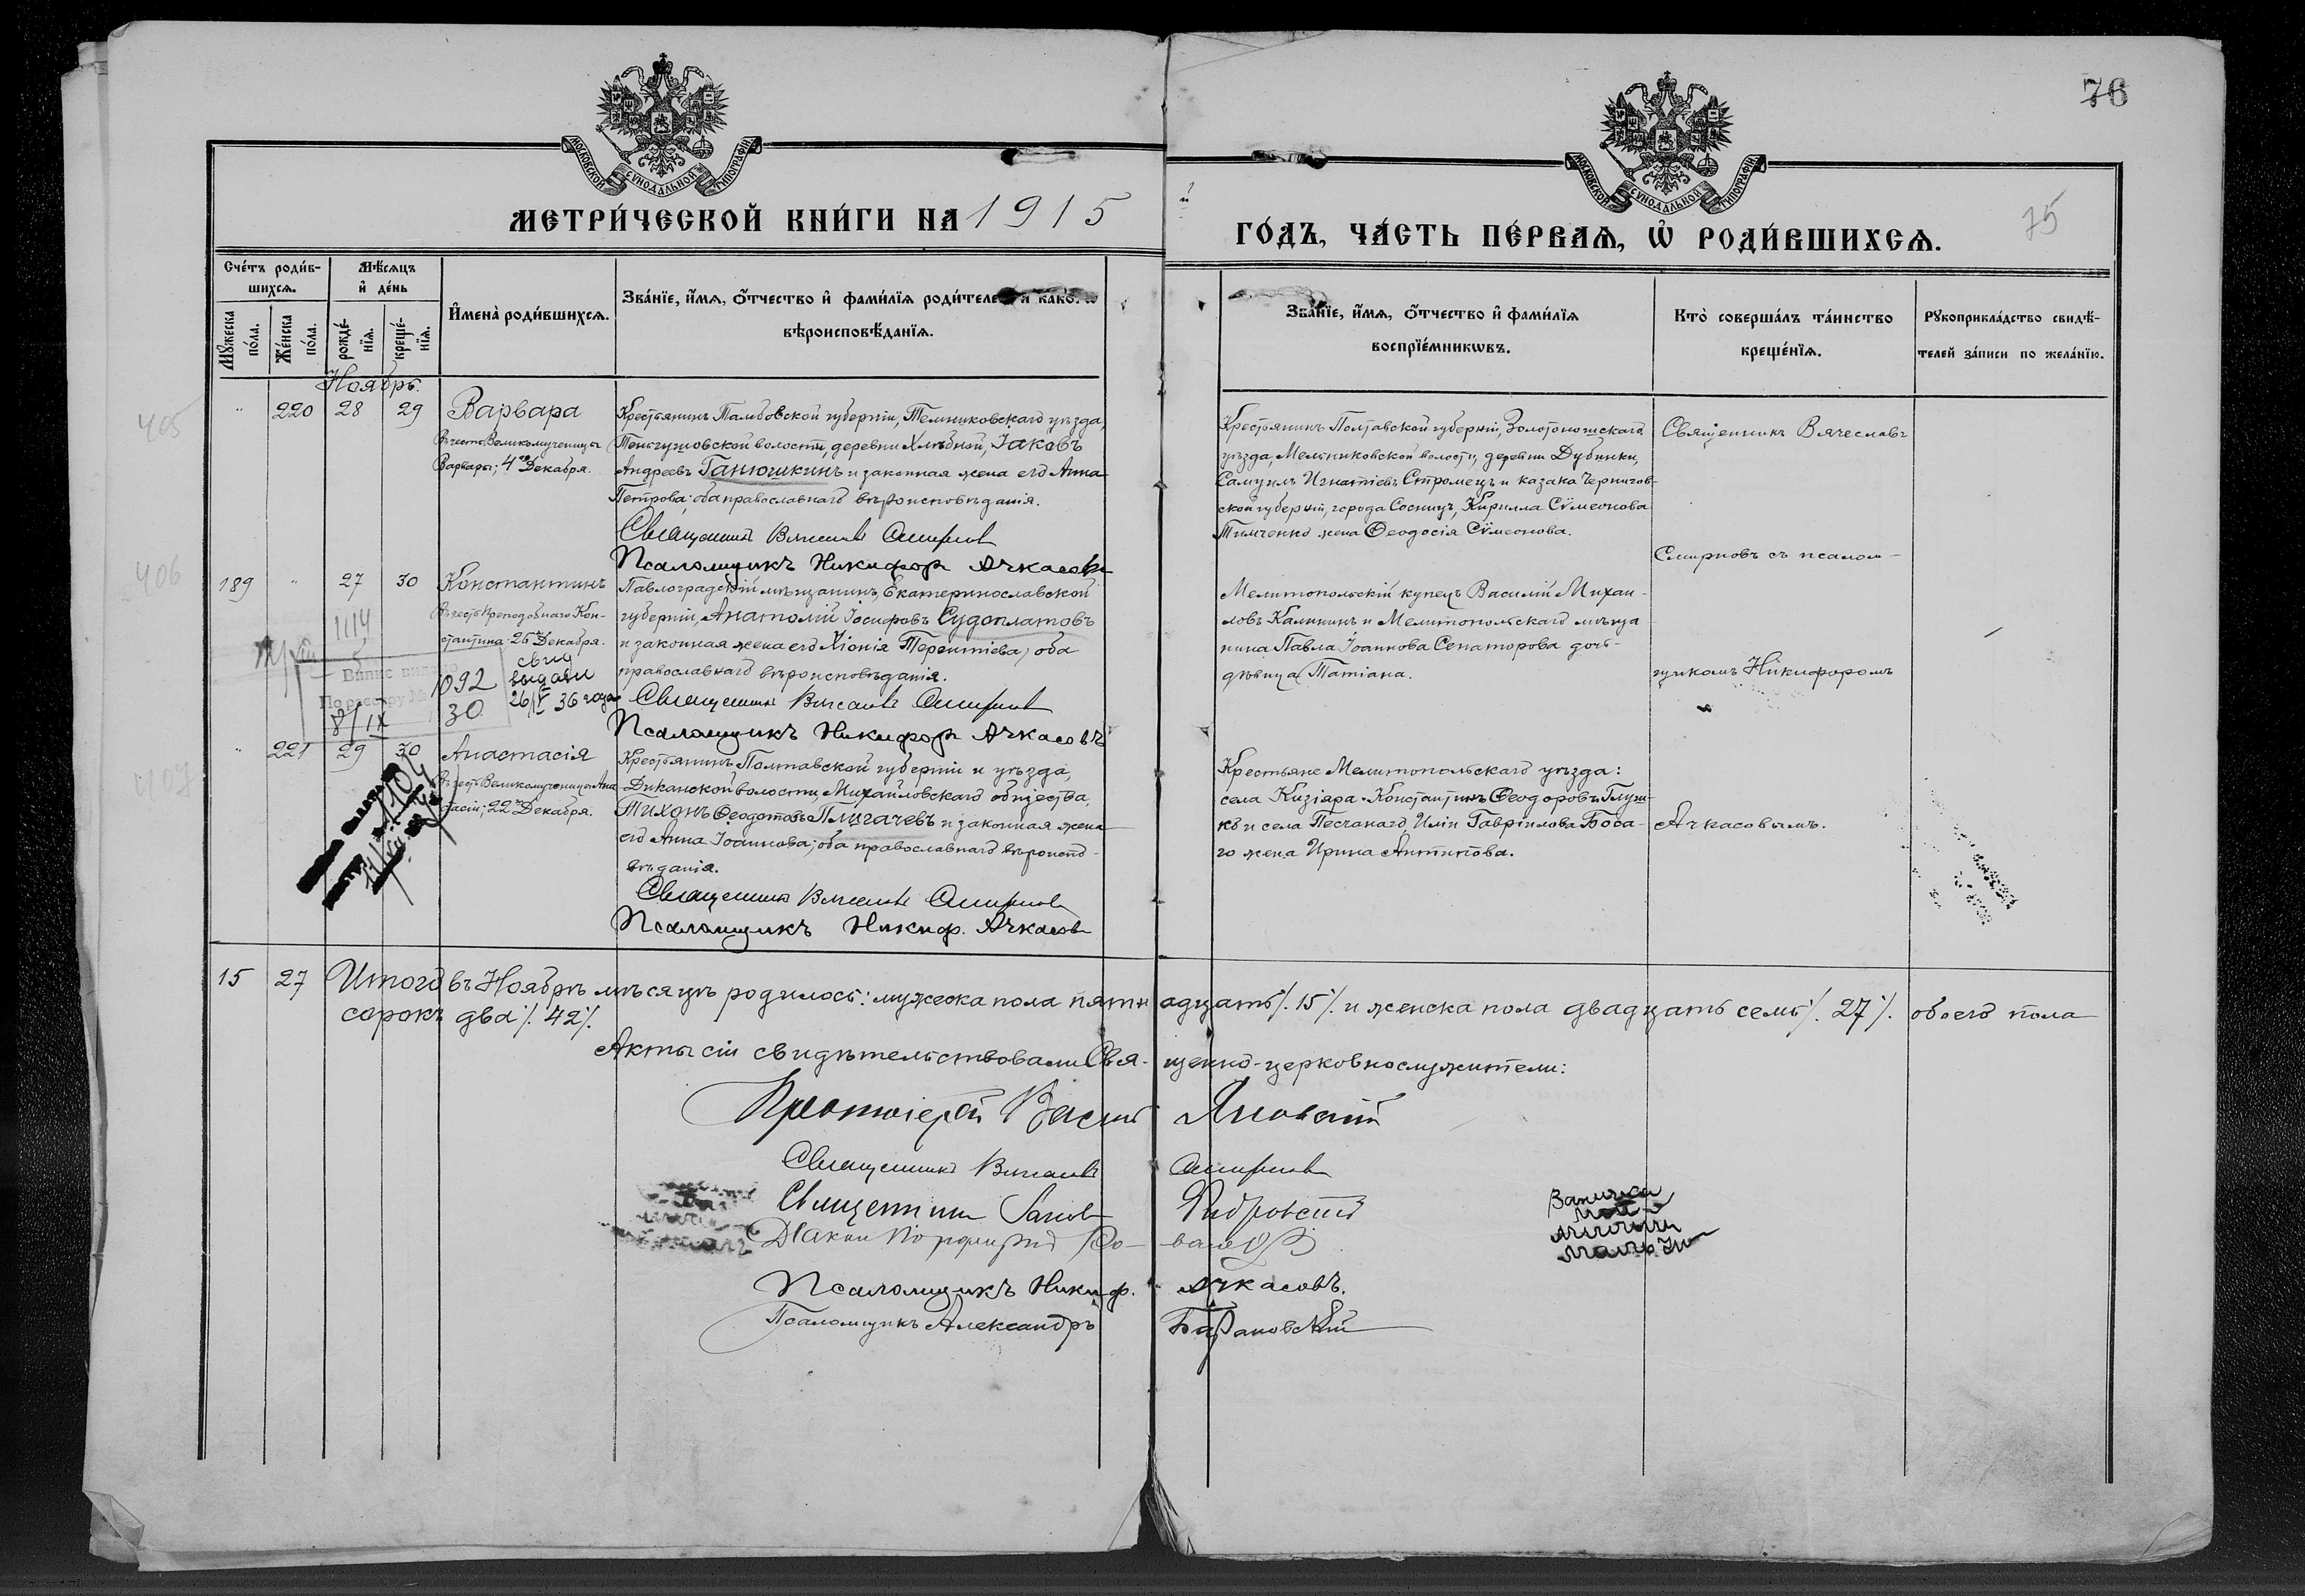 76
75
МОСКОВСКОЙ СѴНОДАЛЬНОЙ ТИПОГРАФІИ
МОСКОВСКОЙ СѴНОДАЛЬНОЙ ТИПОГРАФІИ
МЕТРИ́ЧЕСКОЙ КНИ́ГИ НА 1915
ГО́ДЪ, ЧА́СТЬ ПЕ́РВАѦ, Ѡ҆ РОДИ́ВШИХСѦ.
Сче́тъ роди́в-
шихсѧ.
Мꙋ́жеска по́ла.
Же́нска по́ла.
Мѣ́сѧцъ
и҆ де́нь
рожде́-
нїѧ.
креще́-
нїѧ.
И҆мена̀ роди́вшихсѧ.
Зва́нїе, и҆́мѧ, ѻ҆́тчество и҆ фами́лїѧ роди́теле
вѣроисповѣ́данїѧ.
Зва́нїе, и҆́мѧ, ѻ҆́тчество и҆ фами́лїѧ
воспрїе́мникѡвъ.
Кто̀ соверша́лъ та́инство
креще́нїѧ.
Рꙋкоприкла́дство свидѣ́-
телей за́писи по жела́нїю.
Ноябрь.
405
" 220 28 29
Варвара
Въ честь Великомученицы
Варвары; 4го Декабря.
Крестьянинъ Тамбовской губерніи, Темниковскаго уѣзда,
Теньгушовской волости, деревни Хлѣбной, Іаковъ
Андреевъ Ганюшкинъ и законная жена его Анна
Петрова; оба православнаго вѣроисповѣданія.
Священникъ Вячеславъ Смирновъ
Псаломщикъ Никифоръ Ачкасовъ
Крестьянинъ Полтавской губерніи, Золотоношскаго
уѣзда, Мельниковской волости, деревни Дубинки,
Самуилъ Игнатіевъ Стромецъ и казака Чернигов-
ской губерніи, города Сосницъ, Кирилла Сѵмеонова
Тимченко жена Ѳеодосія Сѵмеонова.
Священникъ Вячеславъ
Смирновъ съ псалом-
406
189 " 27 30
Константинъ
Въ честь Преподобнаго Кон-
стантина; 26го Декабря.
Павлоградскій мѣщанинъ, Екатеринославской
губерніи, Анатолій Іосифовъ Судоплатовъ
и законная жена его Хіонія Терентіева; оба
православнаго вѣроисповѣданія.
Священникъ Вячеславъ Смирновъ
Псаломщикъ Никифоръ Ачкасовъ
1114
Випис видано
По реєстру №
8/IX
1092
30
свид
выдави
26/V 36 года
Мелитопольскій купецъ Василій Михаи-
ловъ Калинин и Мелитопольскаго мѣща
нина Павла Іоаннова Сенаторова дочь-
дѣвица Татіана.
щикомъ Никифоромъ
407
" 221 29 30
Анастасія
Въ честь Великомученицы Ана
стасіи; 22го Декабря.
Крестьянинъ Полтавской губерніи и уѣзда,
Диканской волости, Михайловскаго общества,
Тихонъ Ѳеодотовъ Плигачевъ и законная жена
его Анна Іоаннова; оба православнаго вѣроиспо-
вѣданія.
Священникъ Вячеславъ Смирновъ
Псаломщикъ Никиф. Ачкасовъ
Крестьяне Мелитопольскаго уѣзда:
села Кизіара Константинъ Ѳеодоровъ Глуш-
ко и села Песчанаго, Иліи Гавріилова Боса-
го жена Ирина Антипова.
Ачкасовымъ.
15 27 Итого въ Ноябрѣ мѣсяцѣ родилось: мужеска пола пятнадцать /. 15 /. и женска пола двадцать семь /. 27 /. обоего пола
сорокъ два /. 42 /.
Акты сіи свидѣтельствовали Священно-церковнослужители:
Протоіерей Василій
Священникъ Вячеславъ Смирновъ
Священникъ
Діаконъ
Псаломщикъ Никиф. Ачкасовъ.
Псаломщикъ Александръ Барановскій